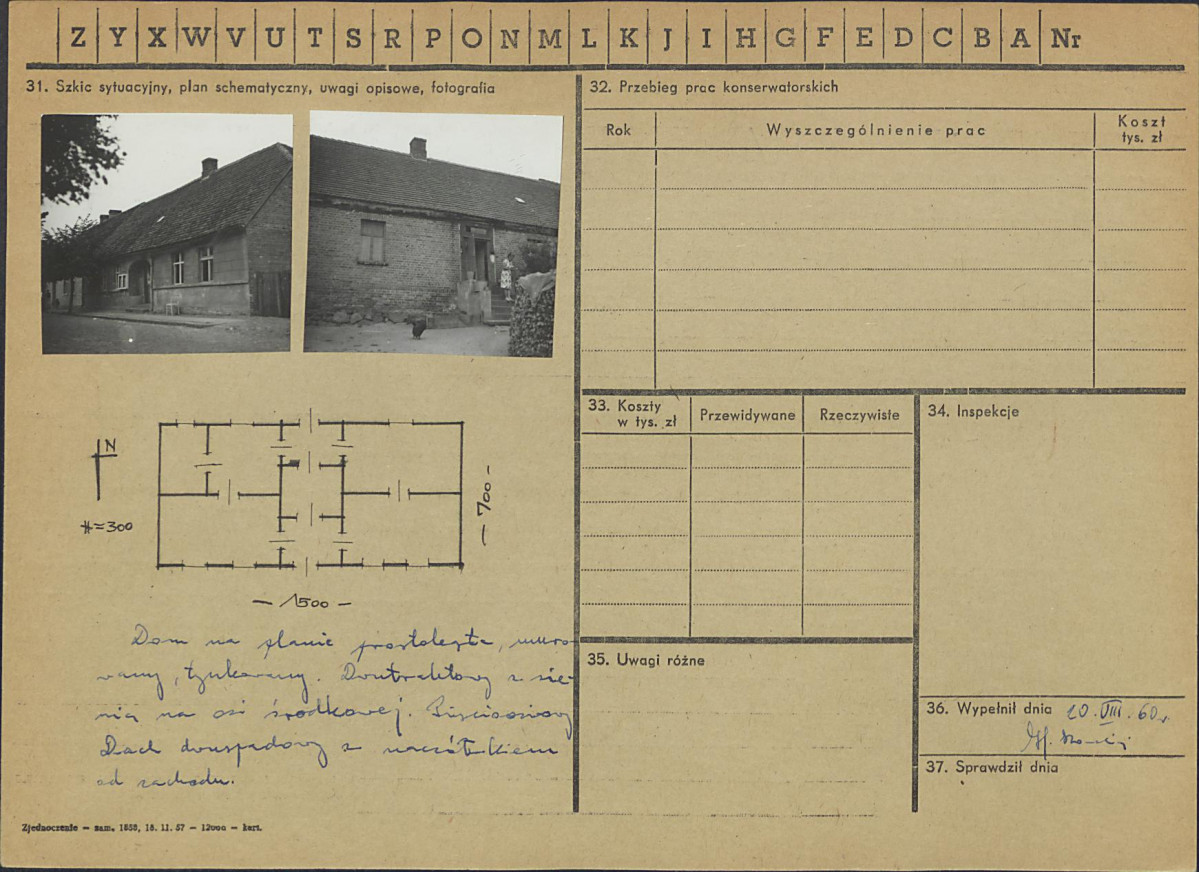 Z Y X W V U T S R P O N M L K J I H G F E D C B A Nr
31. Szkic sytuacyjny, plan schematyczny, uwagi opisowe, fotografia
N
#=300
— 700 —
— 1500 —
Dom na planie prostokąta, muro-
wany, tynkowany. Dwutraktowy z sie-
nią na osi środkowej. Pięcioosiowy
Dach dwuspadowy z naczółkiem
od zachodu.
Zjednoczenie — zam. 1858, 16. 11. 57 — 12000 — kart.
32. Przebieg prac konserwatorskich
Rok
Wyszczególnienie prac
Koszt
tys. zł
33. Koszty
w tys. zł
Przewidywane
Rzeczywiste
34. Inspekcje
35. Uwagi różne
36. Wypełnił dnia 20. VIII. 60 r.
37. Sprawdził dnia